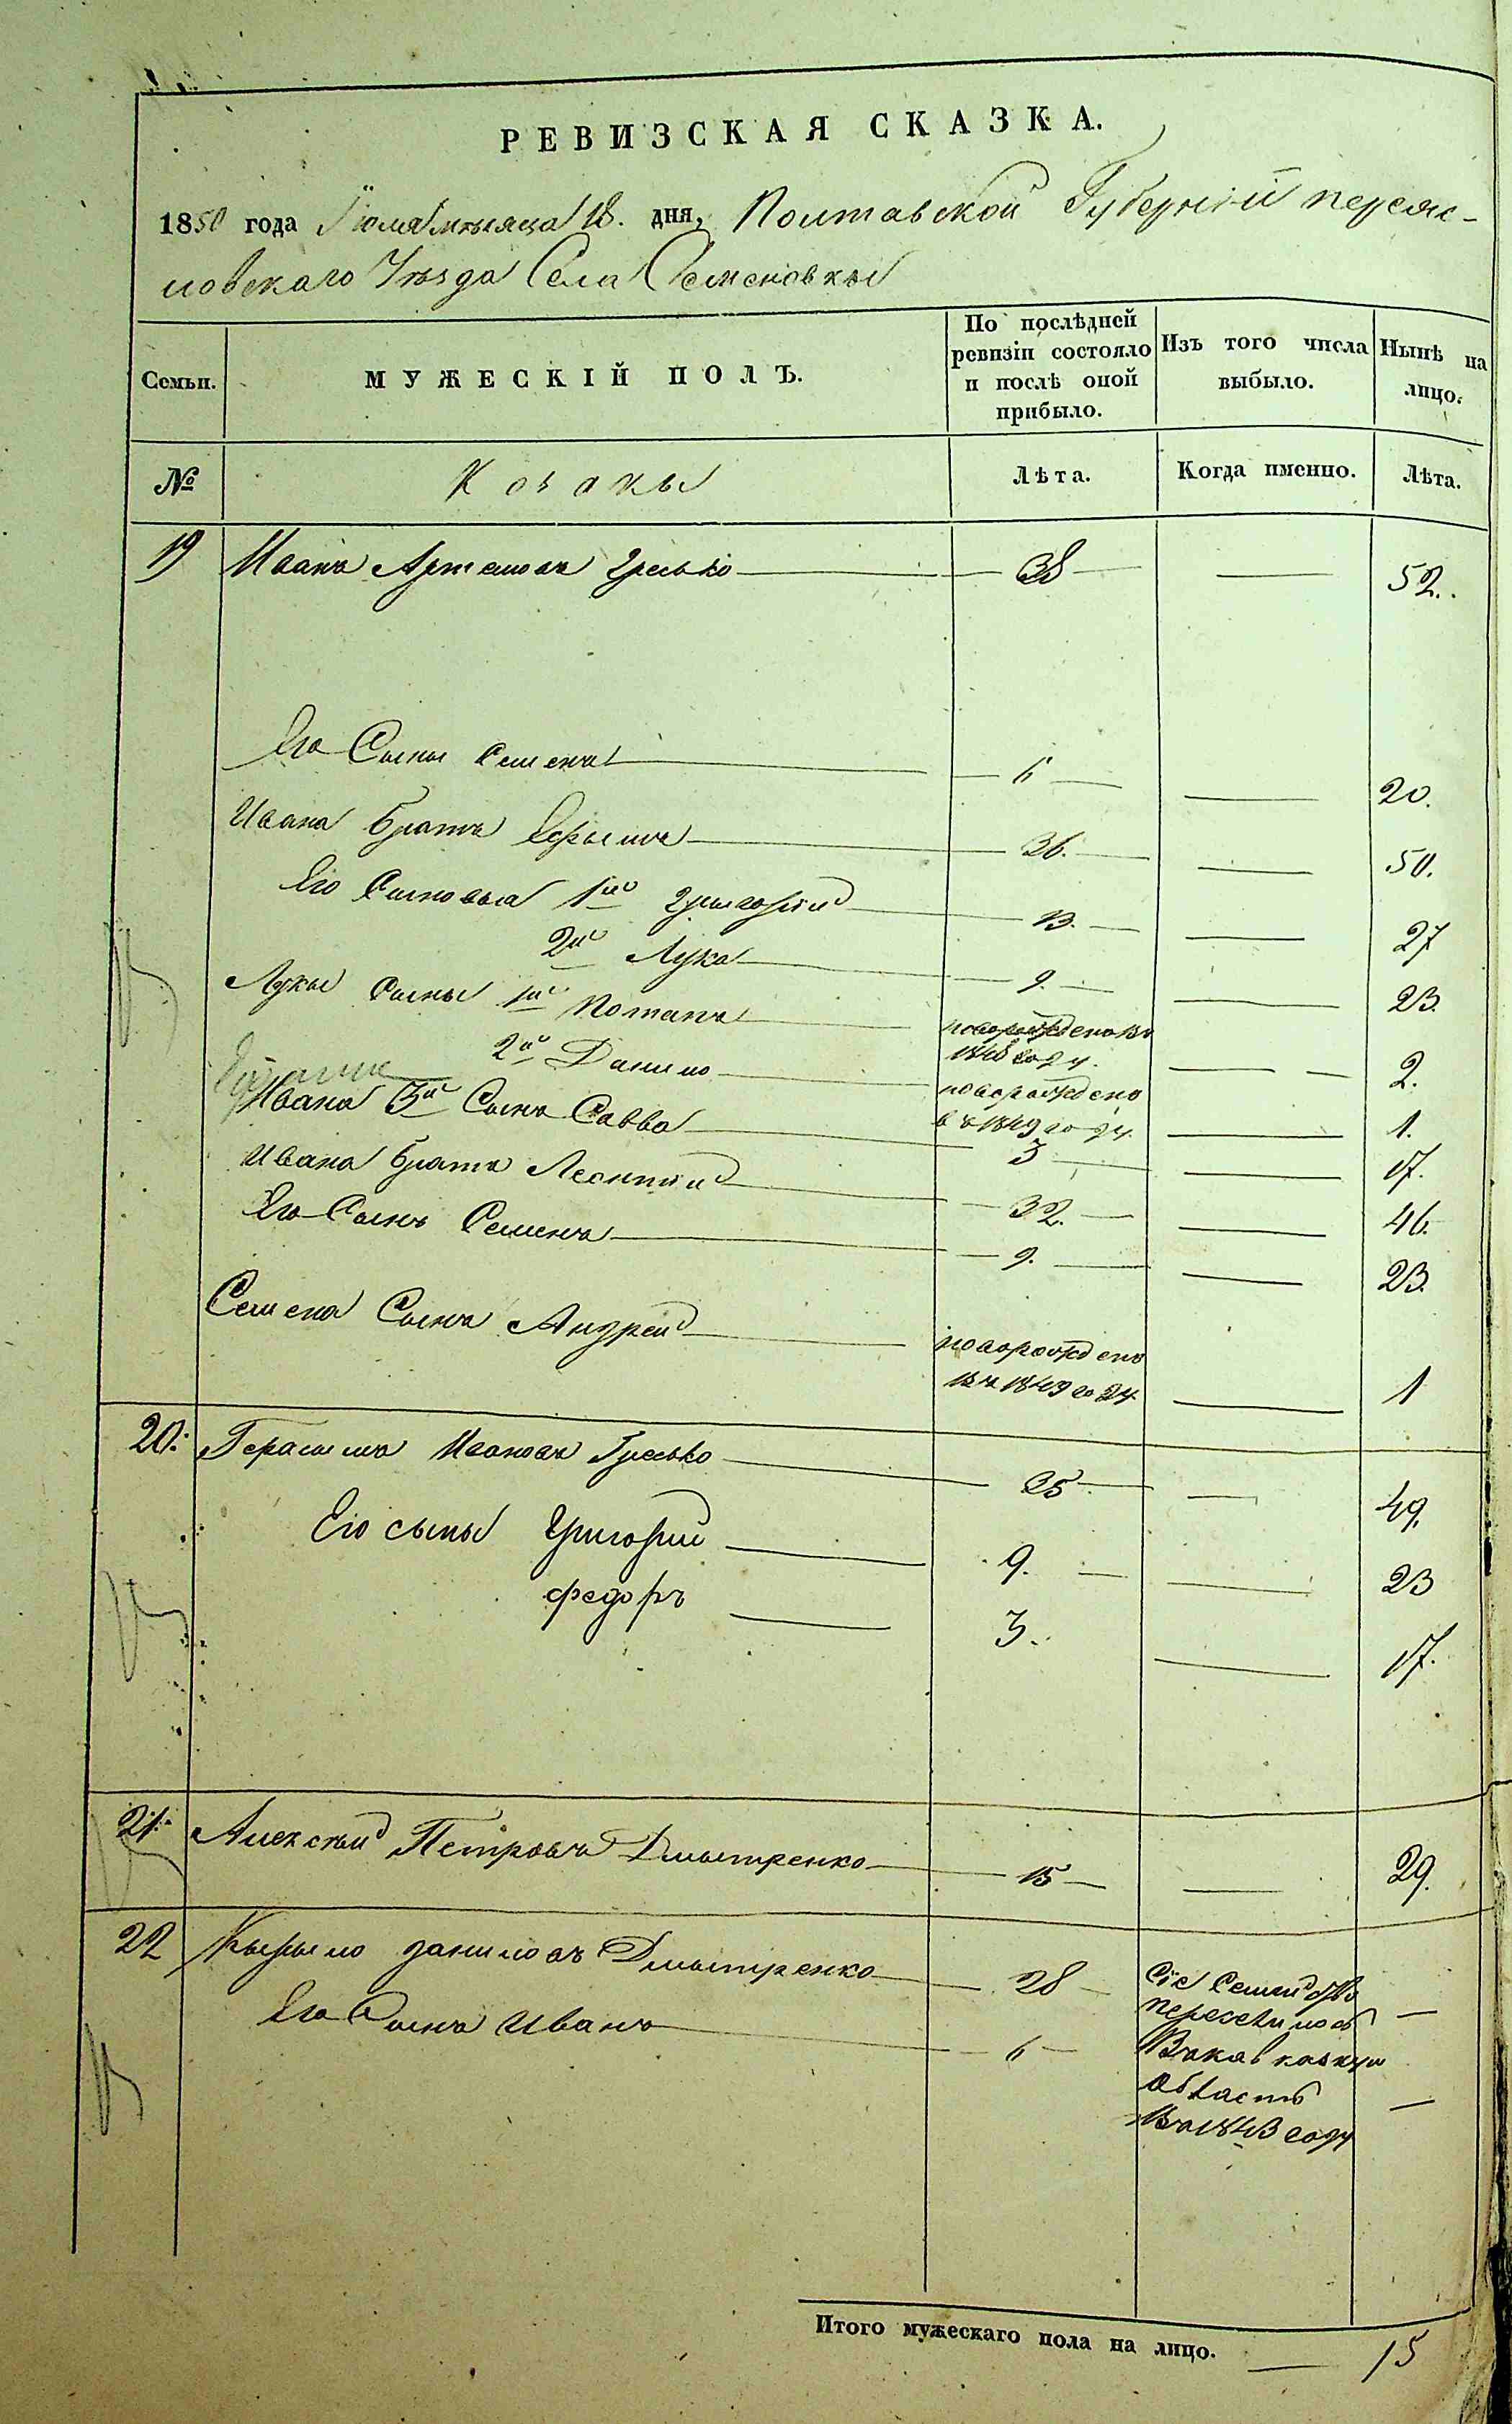 РЕВИЗСКАЯ СКАЗКА.
1850 года Іюля мѣсяца 18. дня, Полтавской Губерніи переяс-
ловскаго Уѣзда Села Семеновкы
Семьи.
МУЖЕСКІЙ ПОЛЪ.
По послѣдней
ревизіи состояло
и послѣ оной
прибыло.
Изъ того числа
выбыло.
Нынѣ на
лицо.
№
Козакы
Лѣта.
Когда именно.
Лѣта.
19 Иванъ Артемовъ Гресько 38 52.
Его Сынъ Семенъ 6 20.
Ивана братъ Ефымъ 36. 50.
Его Сыновья 1й Грыгорій 13. 27
2й Лука 9. 23.
Лукы Сыны 1й Потапъ новорожденъ въ 1848 году. 2.
2й Данило новорожденъ
въ 1849 году. 1.
Ивана 3й Сынъ Савва 3 17.
Ивана братъ Леонтий 32. 46.
Его Сынъ Семенъ 9. 23.
Семена Сынъ Андрей новорожденъ
въ 1849 году 1
20. Герасимъ Ивановъ Гресько 35 49.
Его сыны Григорий 9. 23
федоръ 3. 17.
21. Алексѣй Петровъ Дмытренко 15 29.
22 Кырыло даниловъ Дмытренко 28 Сіе Семийство
переселилось
Его Сынъ Иванъ 6 Въ кавказкую
Область
Въ 1843 году
Итого мужескаго пола на лицо. 15